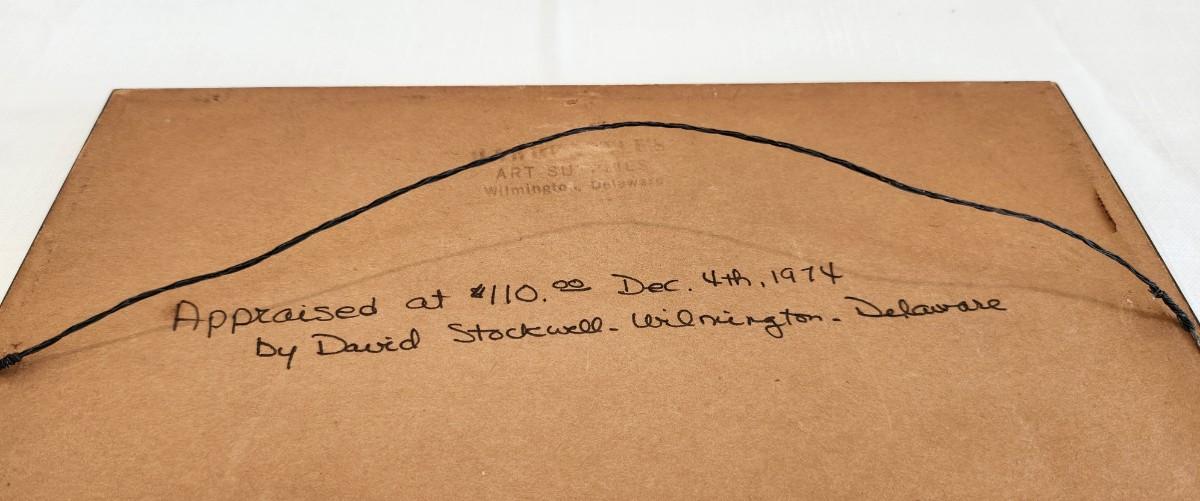 ART SUPPLIES
Wilmington, Delaware
Appraised at $110.00 Dec. 4th, 1974
by David Stockwell - Wilmington - Delaware